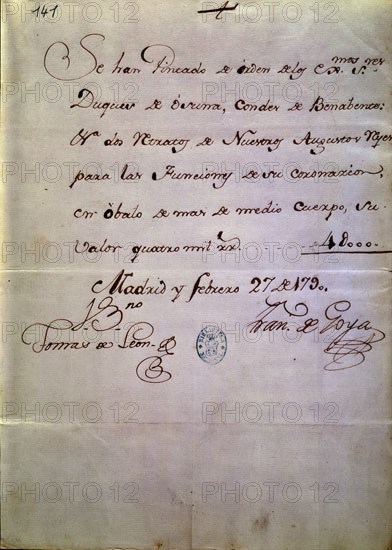 141
Se han Pintado de órden de los Exmos Sres
Duques de Osuna, Condes de Benabente:
dos Retratos de Nuestros Augustos Reyes
para las Funciones de su coronacion,
en óbalo de mas de medio Cuerpo, su
Valor quatro mil rr. 4000..
Madrid y febrero 27 de 1790.
Tomas de Leon
Fran. de Goya
PHOTO 12